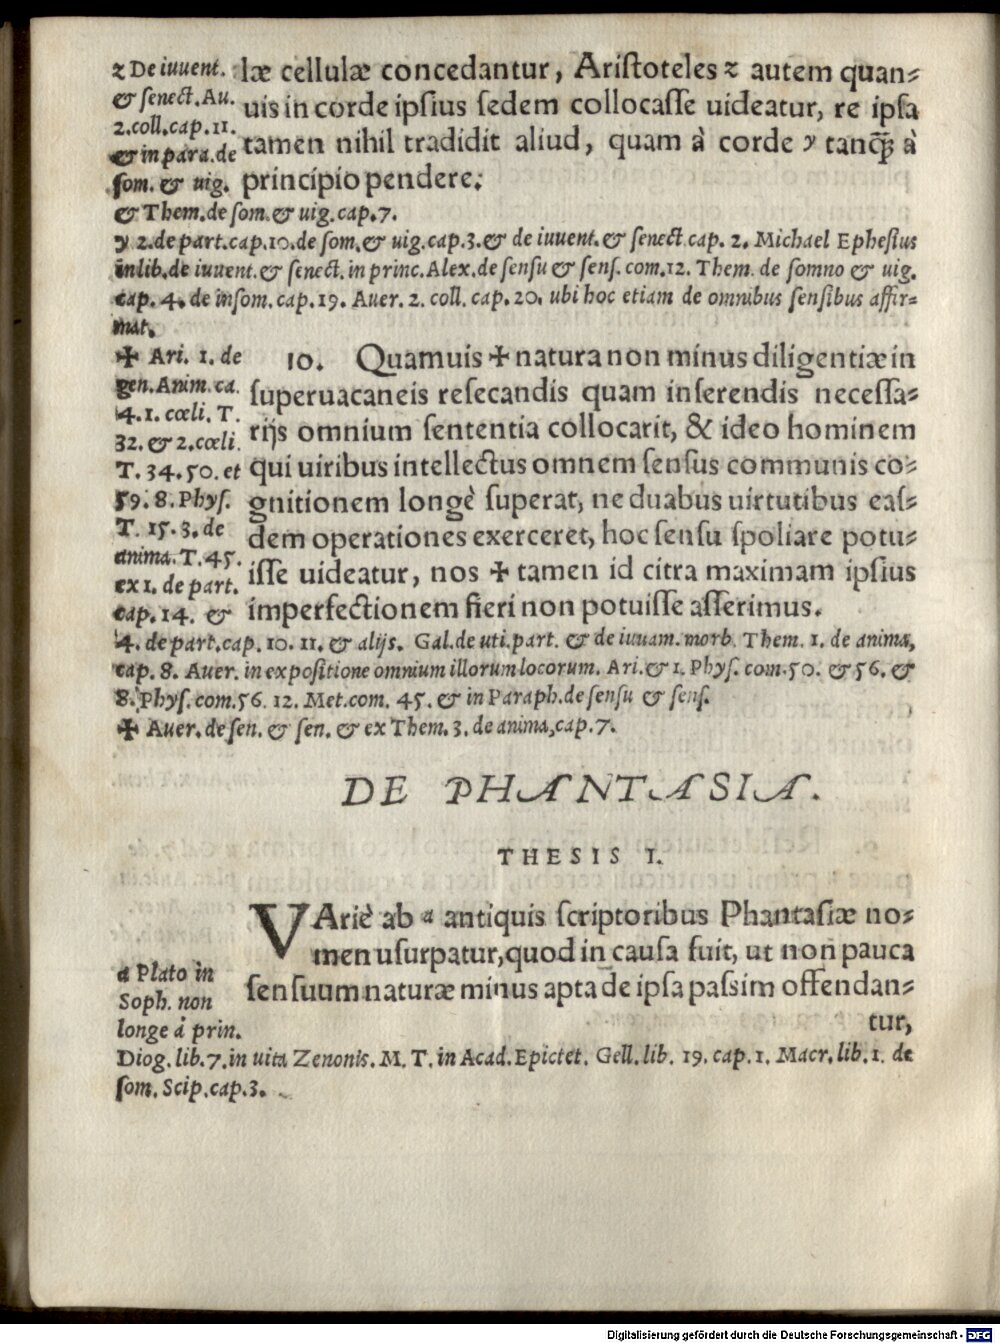 z De iuuent.
& senect. Au.
2. coll. cap. 11.
& in para. de
som. & uig.
læ cellulæ concedantur, Aristoteles z autem quan-
uis in corde ipsius sedem collocasse uideatur, re ipsa
tamen nihil tradidit aliud, quam à corde y tanq̃ à
principio pendere:
& Them. de som. & uig. cap. 7.
y 2. de part. cap. 10. de som. & uig. cap. 3. & de iuuent. & senect. cap. 2. Michael Ephesius
in lib. de iuuent. & senect. in princ. Alex. de sensu & sens. com. 12. Them. de somno & uig.
cap. 4. de insom. cap. 19. Auer. 2. coll. cap. 20. ubi hoc etiam de omnibus sensibus affir-
mat.
✠ Ari. 1. de
gen. Anim. ca.
4. 1. cœli. T.
32. & 2. cœli.
T. 34. 50. et
59. 8. Phys.
T. 15. 3. de
anima. T. 45.
ex 1. de part.
cap. 14. &
10. Quamuis ✠ natura non minus diligentiæ in
superuacaneis resecandis quam inserendis necessa-
rijs omnium sententia collocarit, & ideo hominem
qui uiribus intellectus omnem sensus communis co-
gnitionem longè superat, ne duabus uirtutibus eas-
dem operationes exerceret, hoc sensu spoliare potu-
isse uideatur, nos ✠ tamen id citra maximam ipsius
imperfectionem fieri non potuisse asserimus.
4. de part. cap. 10. 11. & alijs. Gal. de uti. part. & de iuuam. morb. Them. 1. de anima,
cap. 8. Auer. in expositione omnium illorum locorum. Ari. & 1. Phys. com. 50. & 56. &
8. Phys. com. 56. 12. Met. com. 45. & in Paraph. de sensu & sens.
✠ Auer. de sen. & sen. & ex Them. 3. de anima, cap. 7.
DE PHANTASIA.
THESIS I.
VAriè ab a antiquis scriptoribus Phantasiæ no-
men usurpatur, quod in causa fuit, ut non pauca
sensuum naturæ minus apta de ipsa passim offendan-
tur,
a Plato in
Soph. non
longe à prin.
Diog. lib. 7. in uita Zenonis. M. T. in Acad. Epictet. Gell. lib. 19. cap. 1. Macr. lib. 1. de
som. Scip. cap. 3.
Digitalisierung gefördert durch die Deutsche Forschungsgemeinschaft - DFG